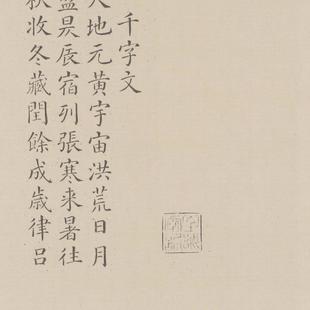 千字文
天地元黃宇宙洪荒日月
盈昃辰宿列張寒来暑往
秋收冬藏閏餘成歳律呂